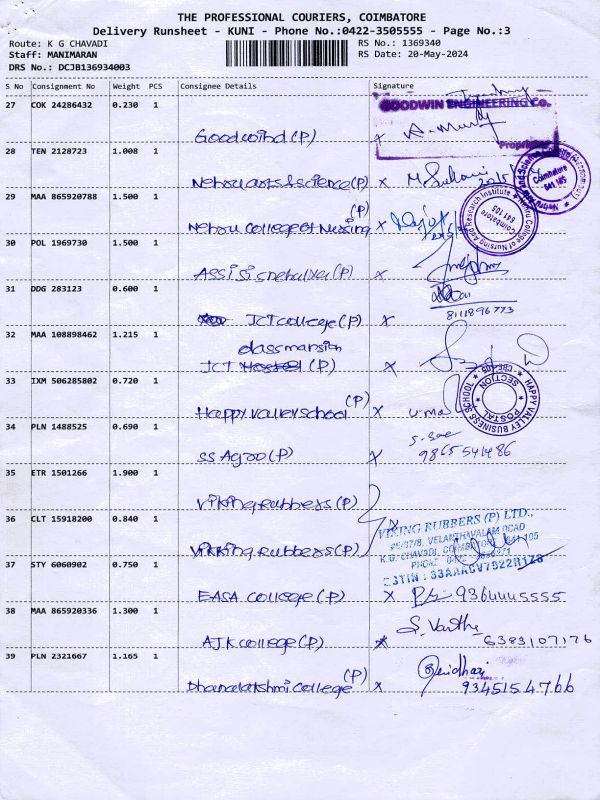 THE PROFESSIONAL COURIERS, COIMBATORE
Delivery Runsheet - KUNI - Phone No.:0422-3505555 - Page No.:3
Route: K G CHAVADI RS No.: 1369340
Staff: MANIMARAN RS Date: 20-May-2024
DRS No.: DCJB136934003
S No Consignment No Weight PCS Consignee Details Signature
27 COK 24286432 0.230 1
GOODWIN ENGINEERING Co.
Goodwind (P) x A. Murthy
Proprietor
28 TEN 2128723 1.008 1
Nehru arts & science (P) x M. Suhani
Coimbatore
641 105
29 MAA 865920788 1.500 1
(P)
Nehru College of Nursing x
Nehru College of Nursing and Research Institute
Coimbatore
641 105
30 POL 1969730 1.500 1
Assisi snehalaya (P) x
31 DDG 283123 0.600 1
8111896773
JCT college (P) x
32 MAA 108898462 1.215 1
classmansion
JCT Hostel (P) x
33 IXM 506285802 0.720 1
(P)
Happy valley school x uma
HAPPY VALLEY BUSINESS SCHOOL
POSTAL SECTION
CBE-105
34 PLN 1488525 0.690 1
SS Agro (P) x 9865541486
35 ETR 1501266 1.900 1
Viking Rubbers (P)
36 CLT 15918200 0.840 1
Vikking Rubbers (P) x
VIKING RUBBERS (P) LTD.,
VELANTHAVALAM ROAD
K.G. CHAVADI, COIMBATORE - 641 105
PHONE
GSTIN : 33AAACV7922R1Z8
37 STY 6060902 0.750 1
EASA College (P) x 9364445555
38 MAA 865920336 1.300 1
S. Vasthe
AJK college (P) x 6383107176
39 PLN 2321667 1.165 1
(P)
Dhanalakshmi College x 9345154766